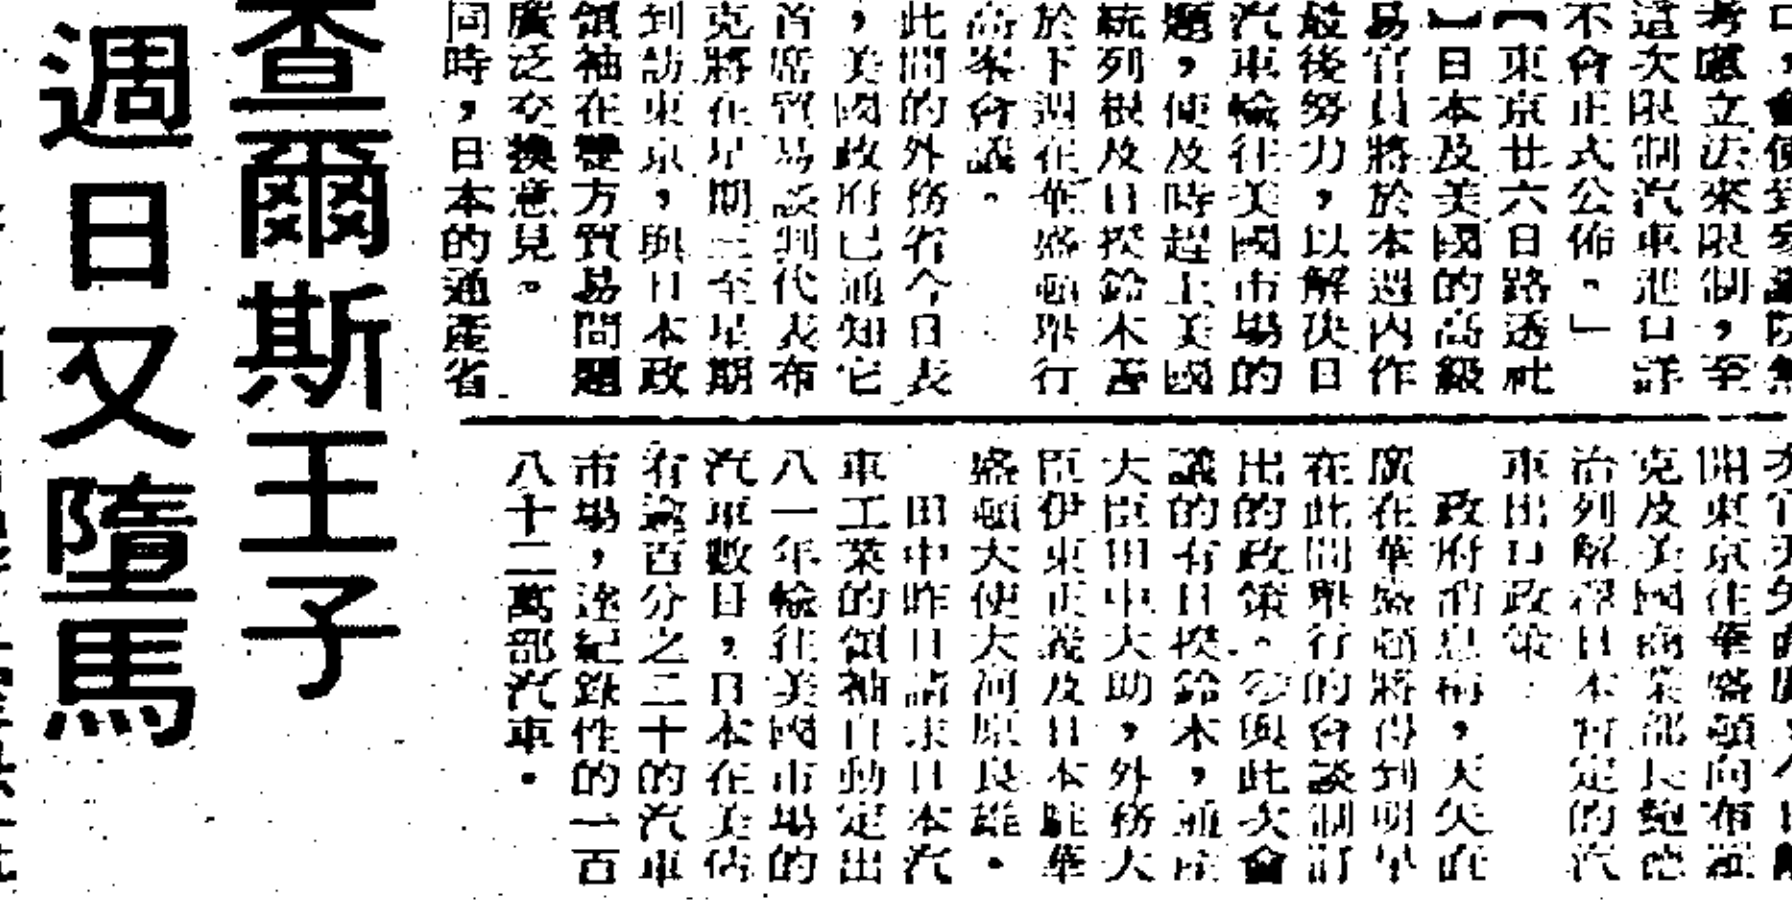 考慮立法來限制，至
這次限制汽車進口詳
不會正式公佈。」
【東京廿六日路透社
】日本及美國的高級
易官員將於本週內作
最後努力，以解決日
汽車輸往美國市場的
題，使及時趕上美國
統列根及日揆鈴木善
於下週在華盛頓舉行
高峯會議。
此間的外務省今日表
，美國政府已通知它
首席貿易談判代表布
克將在星期三至星期
到訪東京，與日本政
領袖在雙方貿易問題
廣泛交換意見。
同時，日本的通產省
開東京往華盛頓向布
克及美國商業部長
治列解釋日本暫定的汽
車出口政策
政府消息稱，天矢直
廣在華盛頓將得到明早
在此間舉行的會談制訂
出的政策。參與此次會
議的有日揆鈴木，通產
大臣田中大助，外務大
臣伊東正義及日本駐華
盛頓大使大河原良雄。
田中昨日請求日本汽
車工業的領袖自動定出
八一年輸往美國市場的
汽車數目，日本在美佔
有逾百分之二十的汽車
市場，達紀錄性的一百
八十二萬部汽車。
查爾斯王子
週日又墮馬